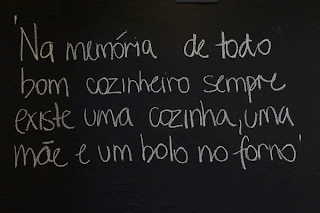 'Na memória de todo
bom cozinheiro sempre
existe uma cozinha, uma
mãe e um bolo no forno'